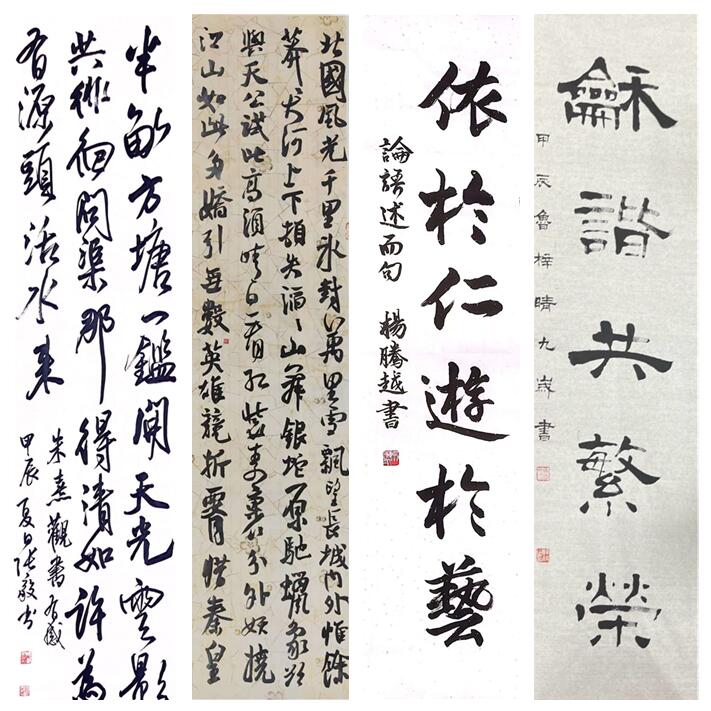 半畝方塘一鑑開天光雲影
共徘徊問渠那得清如許為
有源頭活水來
朱熹觀書有感
甲辰夏日張毅书
北國風光千里冰封萬里雪飄望長城內外惟餘
莽〻大河上下頓失滔〻山舞銀蛇原馳蠟象欲
與天公試比高須晴日看紅裝素裹分外妖嬈
江山如此多嬌引無數英雄競折腰惜秦皇
依於仁遊於藝
論語述而句 楊騰越書
龢諧共繁榮
甲辰魯梓晴九歲書